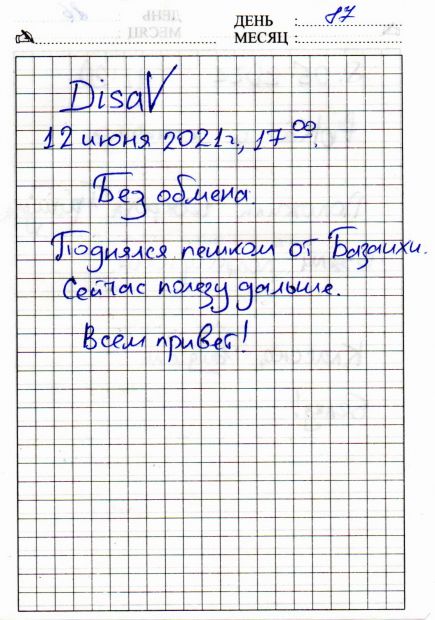 ДЕНЬ : 87
МЕСЯЦ :
DisaV
12 июня 2021г., 17 00.
Без обмена.
Поднялся пешком от Базаихи.
Сейчас полезу дальше.
Всем привет!